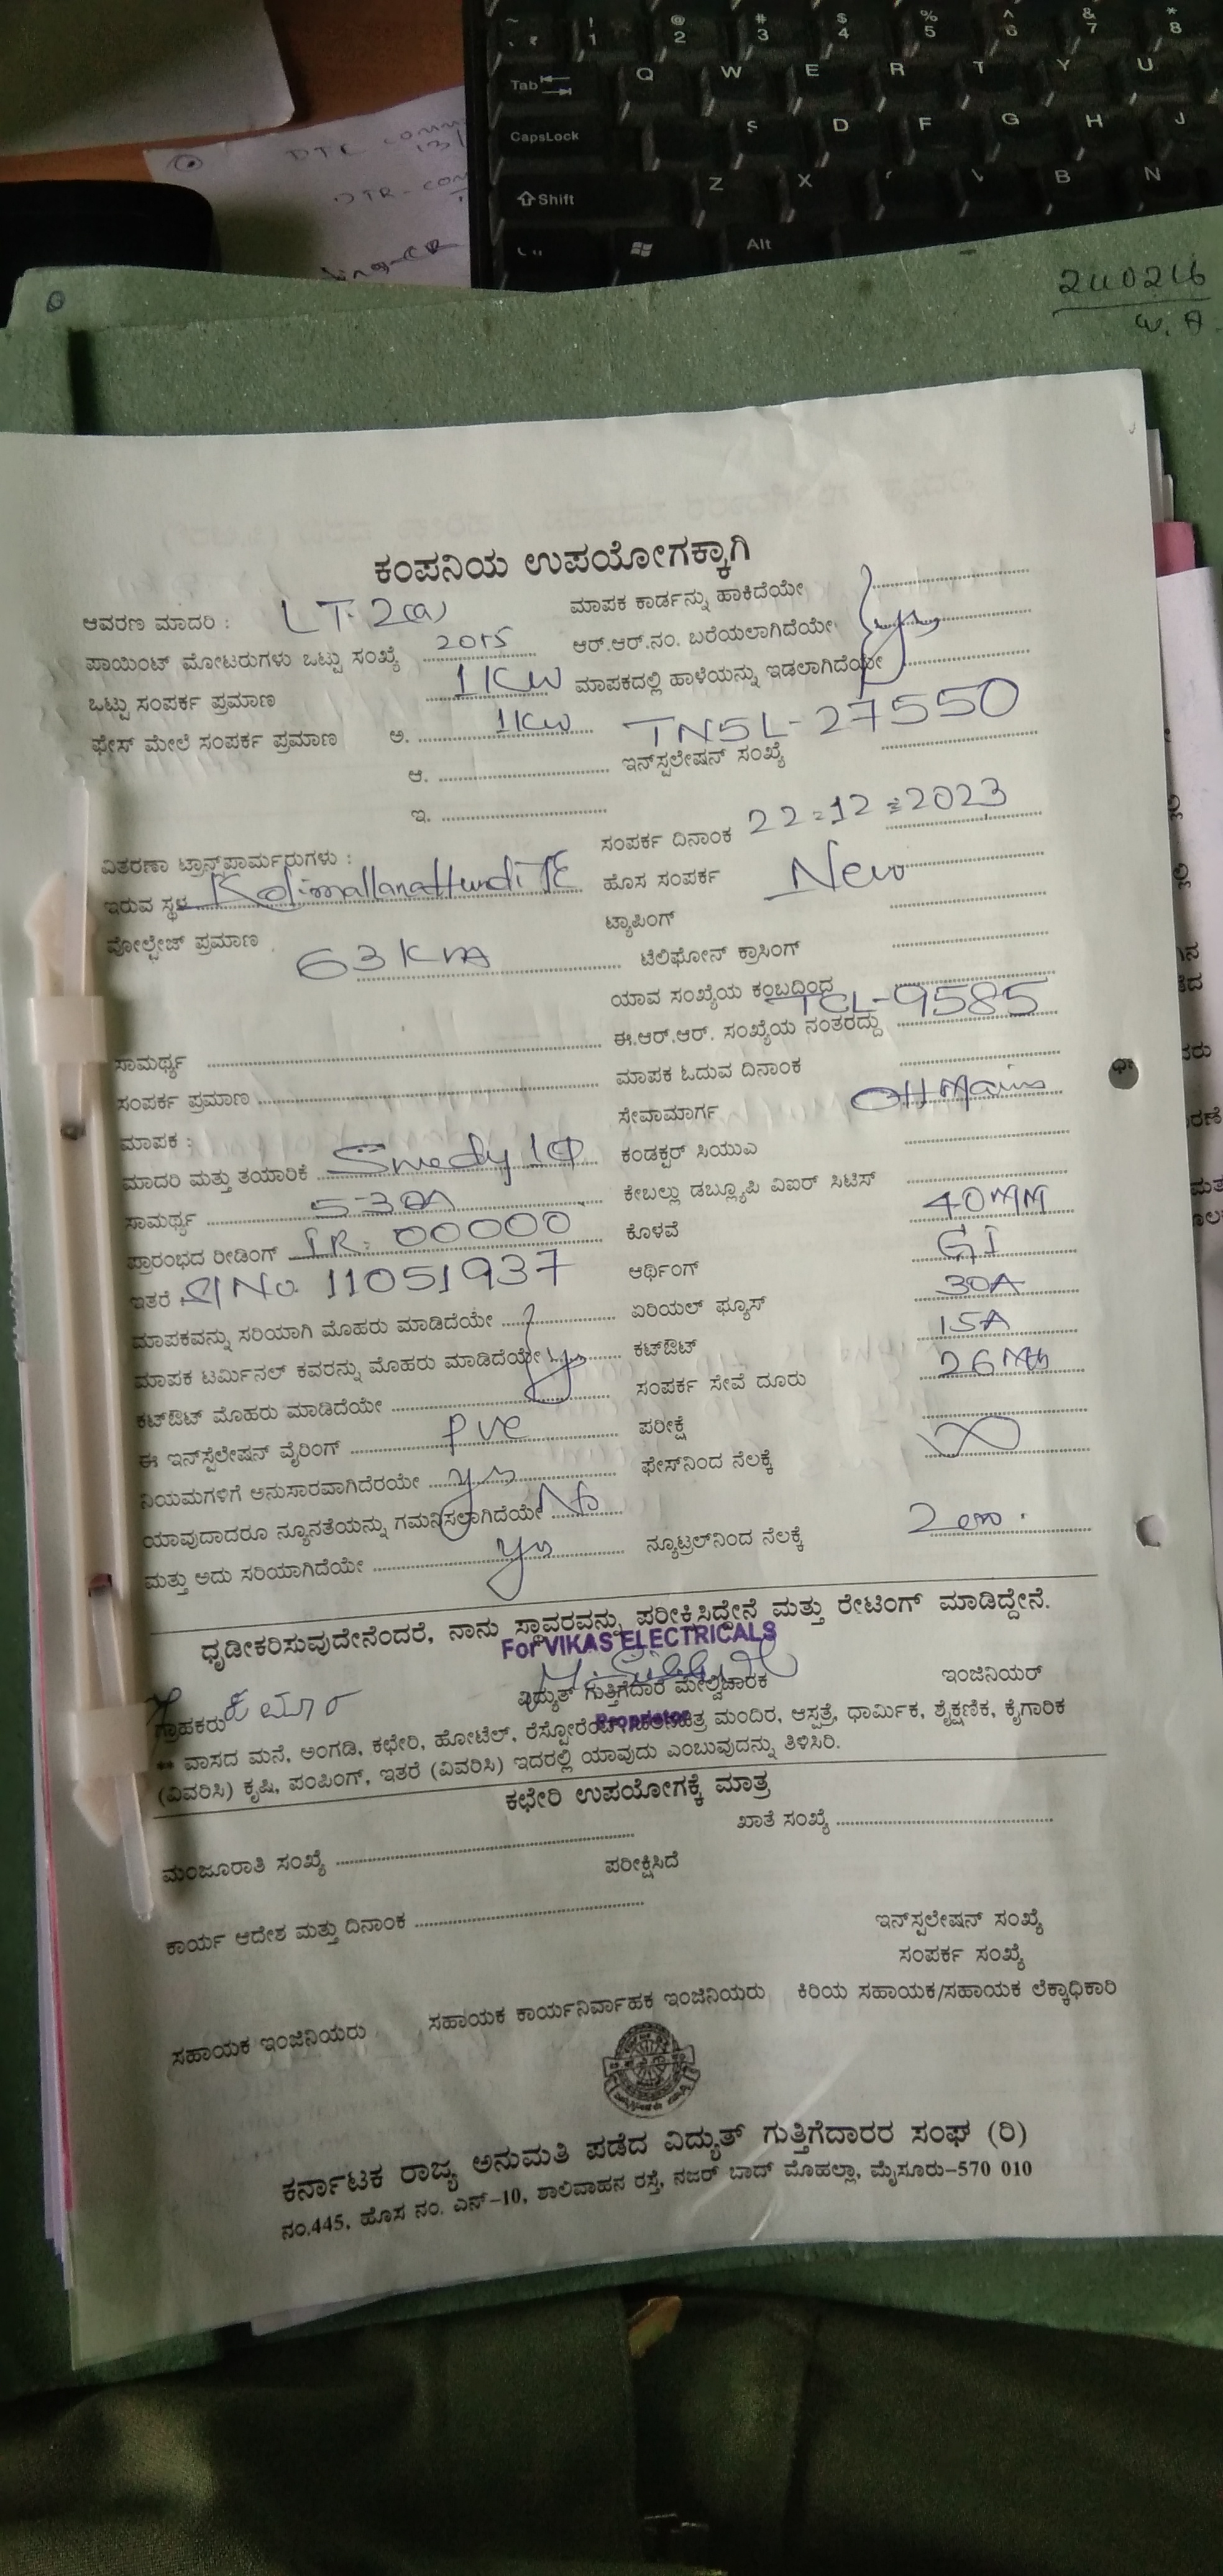 Tab Q W E R T Y U
CapsLock S D F G H J
Shift Z X B N
Alt
DTC
240246
W. A
ಕಂಪನಿಯ ಉಪಯೋಗಕ್ಕಾಗಿ
ಆವರಣ ಮಾದರಿ : LT-2(a) ಮಾಪಕ ಕಾರ್ಡನ್ನು ಹಾಕಿದೆಯೇ
ಪಾಯಿಂಟ್ ಮೋಟರುಗಳು ಒಟ್ಟು ಸಂಖ್ಯೆ ಆರ್.ಆರ್.ನಂ. ಬರೆಯಲಾಗಿದೆಯೇ yes
ಒಟ್ಟು ಸಂಪರ್ಕ ಪ್ರಮಾಣ 1KW ಮಾಪಕದಲ್ಲಿ ಹಾಳೆಯನ್ನು ಇಡಲಾಗಿದೆಯೇ
ಫೇಸ್ ಮೇಲೆ ಸಂಪರ್ಕ ಪ್ರಮಾಣ ಅ. 1KW TNSL-27550
ಆ. ಇನ್ಸ್ಟಲೇಷನ್ ಸಂಖ್ಯೆ
ಇ.
ಸಂಪರ್ಕ ದಿನಾಂಕ 22-12-2023
ವಿತರಣಾ ಟ್ರಾನ್ಸ್‌ಫಾರ್ಮರುಗಳು :
ಇರುವ ಸ್ಥಳ ಹೊಸ ಸಂಪರ್ಕ New
ವೋಲ್ಟೇಜ್ ಪ್ರಮಾಣ ಟ್ಯಾಪಿಂಗ್
63 ಟೆಲಿಫೋನ್ ಕ್ರಾಸಿಂಗ್
ಯಾವ ಸಂಖ್ಯೆಯ ಕಂಬದಿಂದ TCL-9585
ಸಾಮರ್ಥ್ಯ ಈ.ಆರ್.ಆರ್. ಸಂಖ್ಯೆಯ ನಂತರದ್ದು
ಸಂಪರ್ಕ ಪ್ರಮಾಣ ಮಾಪಕ ಓದುವ ದಿನಾಂಕ
ಮಾಪಕ : ಸೇವಾಮಾರ್ಗ OH Mains
ಮಾದರಿ ಮತ್ತು ತಯಾರಿಕೆ ಕಂಡಕ್ಟರ್ ಸಿಯುಎ
ಸಾಮರ್ಥ್ಯ 5-30A ಕೇಬಲ್ಲು ಡಬ್ಲ್ಯೂಪಿ ವಿಐರ್ ಸಿಟಿಸ್
ಪ್ರಾರಂಭದ ರೀಡಿಂಗ್ IR- 00000 ಕೊಳವೆ 40MM
ಇತರೆ Sl No. 11051937 ಆರ್ಥಿಂಗ್ GI
ಮಾಪಕವನ್ನು ಸರಿಯಾಗಿ ಮೊಹರು ಮಾಡಿದೆಯೇ ಏರಿಯಲ್ ಫ್ಯೂಸ್ 30A
ಮಾಪಕ ಟರ್ಮಿನಲ್ ಕವರನ್ನು ಮೊಹರು ಮಾಡಿದೆಯೇ yes ಕಟ್‌ಔಟ್ 15A
ಕಟ್‌ಔಟ್ ಮೊಹರು ಮಾಡಿದೆಯೇ ಸಂಪರ್ಕ ಸೇವೆ ದೂರು
ಈ ಇನ್ಸ್ಟೆಲೇಷನ್ ವೈರಿಂಗ್ PVC ಪರೀಕ್ಷೆ
ನಿಯಮಗಳಿಗೆ ಅನುಸಾರವಾಗಿದೆರಯೇ yes ಫೇಸ್‌ನಿಂದ ನೆಲಕ್ಕೆ ∞
ಯಾವುದಾದರೂ ನ್ಯೂನತೆಯನ್ನು ಗಮನಿಸಲಾಗಿದೆಯೇ No
ಮತ್ತು ಅದು ಸರಿಯಾಗಿದೆಯೇ yes ನ್ಯೂಟ್ರಲ್‌ನಿಂದ ನೆಲಕ್ಕೆ Zero.
ಧೃಡೀಕರಿಸುವುದೇನೆಂದರೆ, ನಾನು ಸ್ಥಾವರವನ್ನು ಪರೀಕ್ಷಿಸಿದ್ದೇನೆ ಮತ್ತು ರೇಟಿಂಗ್ ಮಾಡಿದ್ದೇನೆ.
For VIKAS ELECTRICALS
ಗ್ರಾಹಕರು ವಿದ್ಯುತ್ ಗುತ್ತಿಗೆದಾರ ಮೇಲ್ವಿಚಾರಕ ಇಂಜಿನಿಯರ್
Proprietor
** ವಾಸದ ಮನೆ, ಅಂಗಡಿ, ಕಛೇರಿ, ಹೋಟೆಲ್, ರೆಸ್ಟೋರೆಂಟ್, ಮಂದಿರ, ಆಸ್ಪತ್ರೆ, ಧಾರ್ಮಿಕ, ಶೈಕ್ಷಣಿಕ, ಕೈಗಾರಿಕ
(ವಿವರಿಸಿ) ಕೃಷಿ, ಪಂಪಿಂಗ್, ಇತರೆ (ವಿವರಿಸಿ) ಇದರಲ್ಲಿ ಯಾವುದು ಎಂಬುವುದನ್ನು ತಿಳಿಸಿರಿ.
ಕಛೇರಿ ಉಪಯೋಗಕ್ಕೆ ಮಾತ್ರ
ಮಂಜೂರಾತಿ ಸಂಖ್ಯೆ ಖಾತೆ ಸಂಖ್ಯೆ
ಪರೀಕ್ಷಿಸಿದೆ
ಕಾರ್ಯ ಆದೇಶ ಮತ್ತು ದಿನಾಂಕ
ಇನ್‌ಸ್ಟಲೇಷನ್ ಸಂಖ್ಯೆ
ಸಂಪರ್ಕ ಸಂಖ್ಯೆ
ಸಹಾಯಕ ಇಂಜಿನಿಯರು ಸಹಾಯಕ ಕಾರ್ಯನಿರ್ವಾಹಕ ಇಂಜಿನಿಯರು ಕಿರಿಯ ಸಹಾಯಕ/ಸಹಾಯಕ ಲೆಕ್ಕಾಧಿಕಾರಿ
ಕರ್ನಾಟಕ ರಾಜ್ಯ ಅನುಮತಿ ಪಡೆದ ವಿದ್ಯುತ್ ಗುತ್ತಿಗೆದಾರರ ಸಂಘ (ರಿ)
ನಂ.445, ಹೊಸ ನಂ. ಎನ್-10, ಶಾಲಿವಾಹನ ರಸ್ತೆ, ನಜರ್ ಬಾದ್ ಮೊಹಲ್ಲಾ, ಮೈಸೂರು-570 010